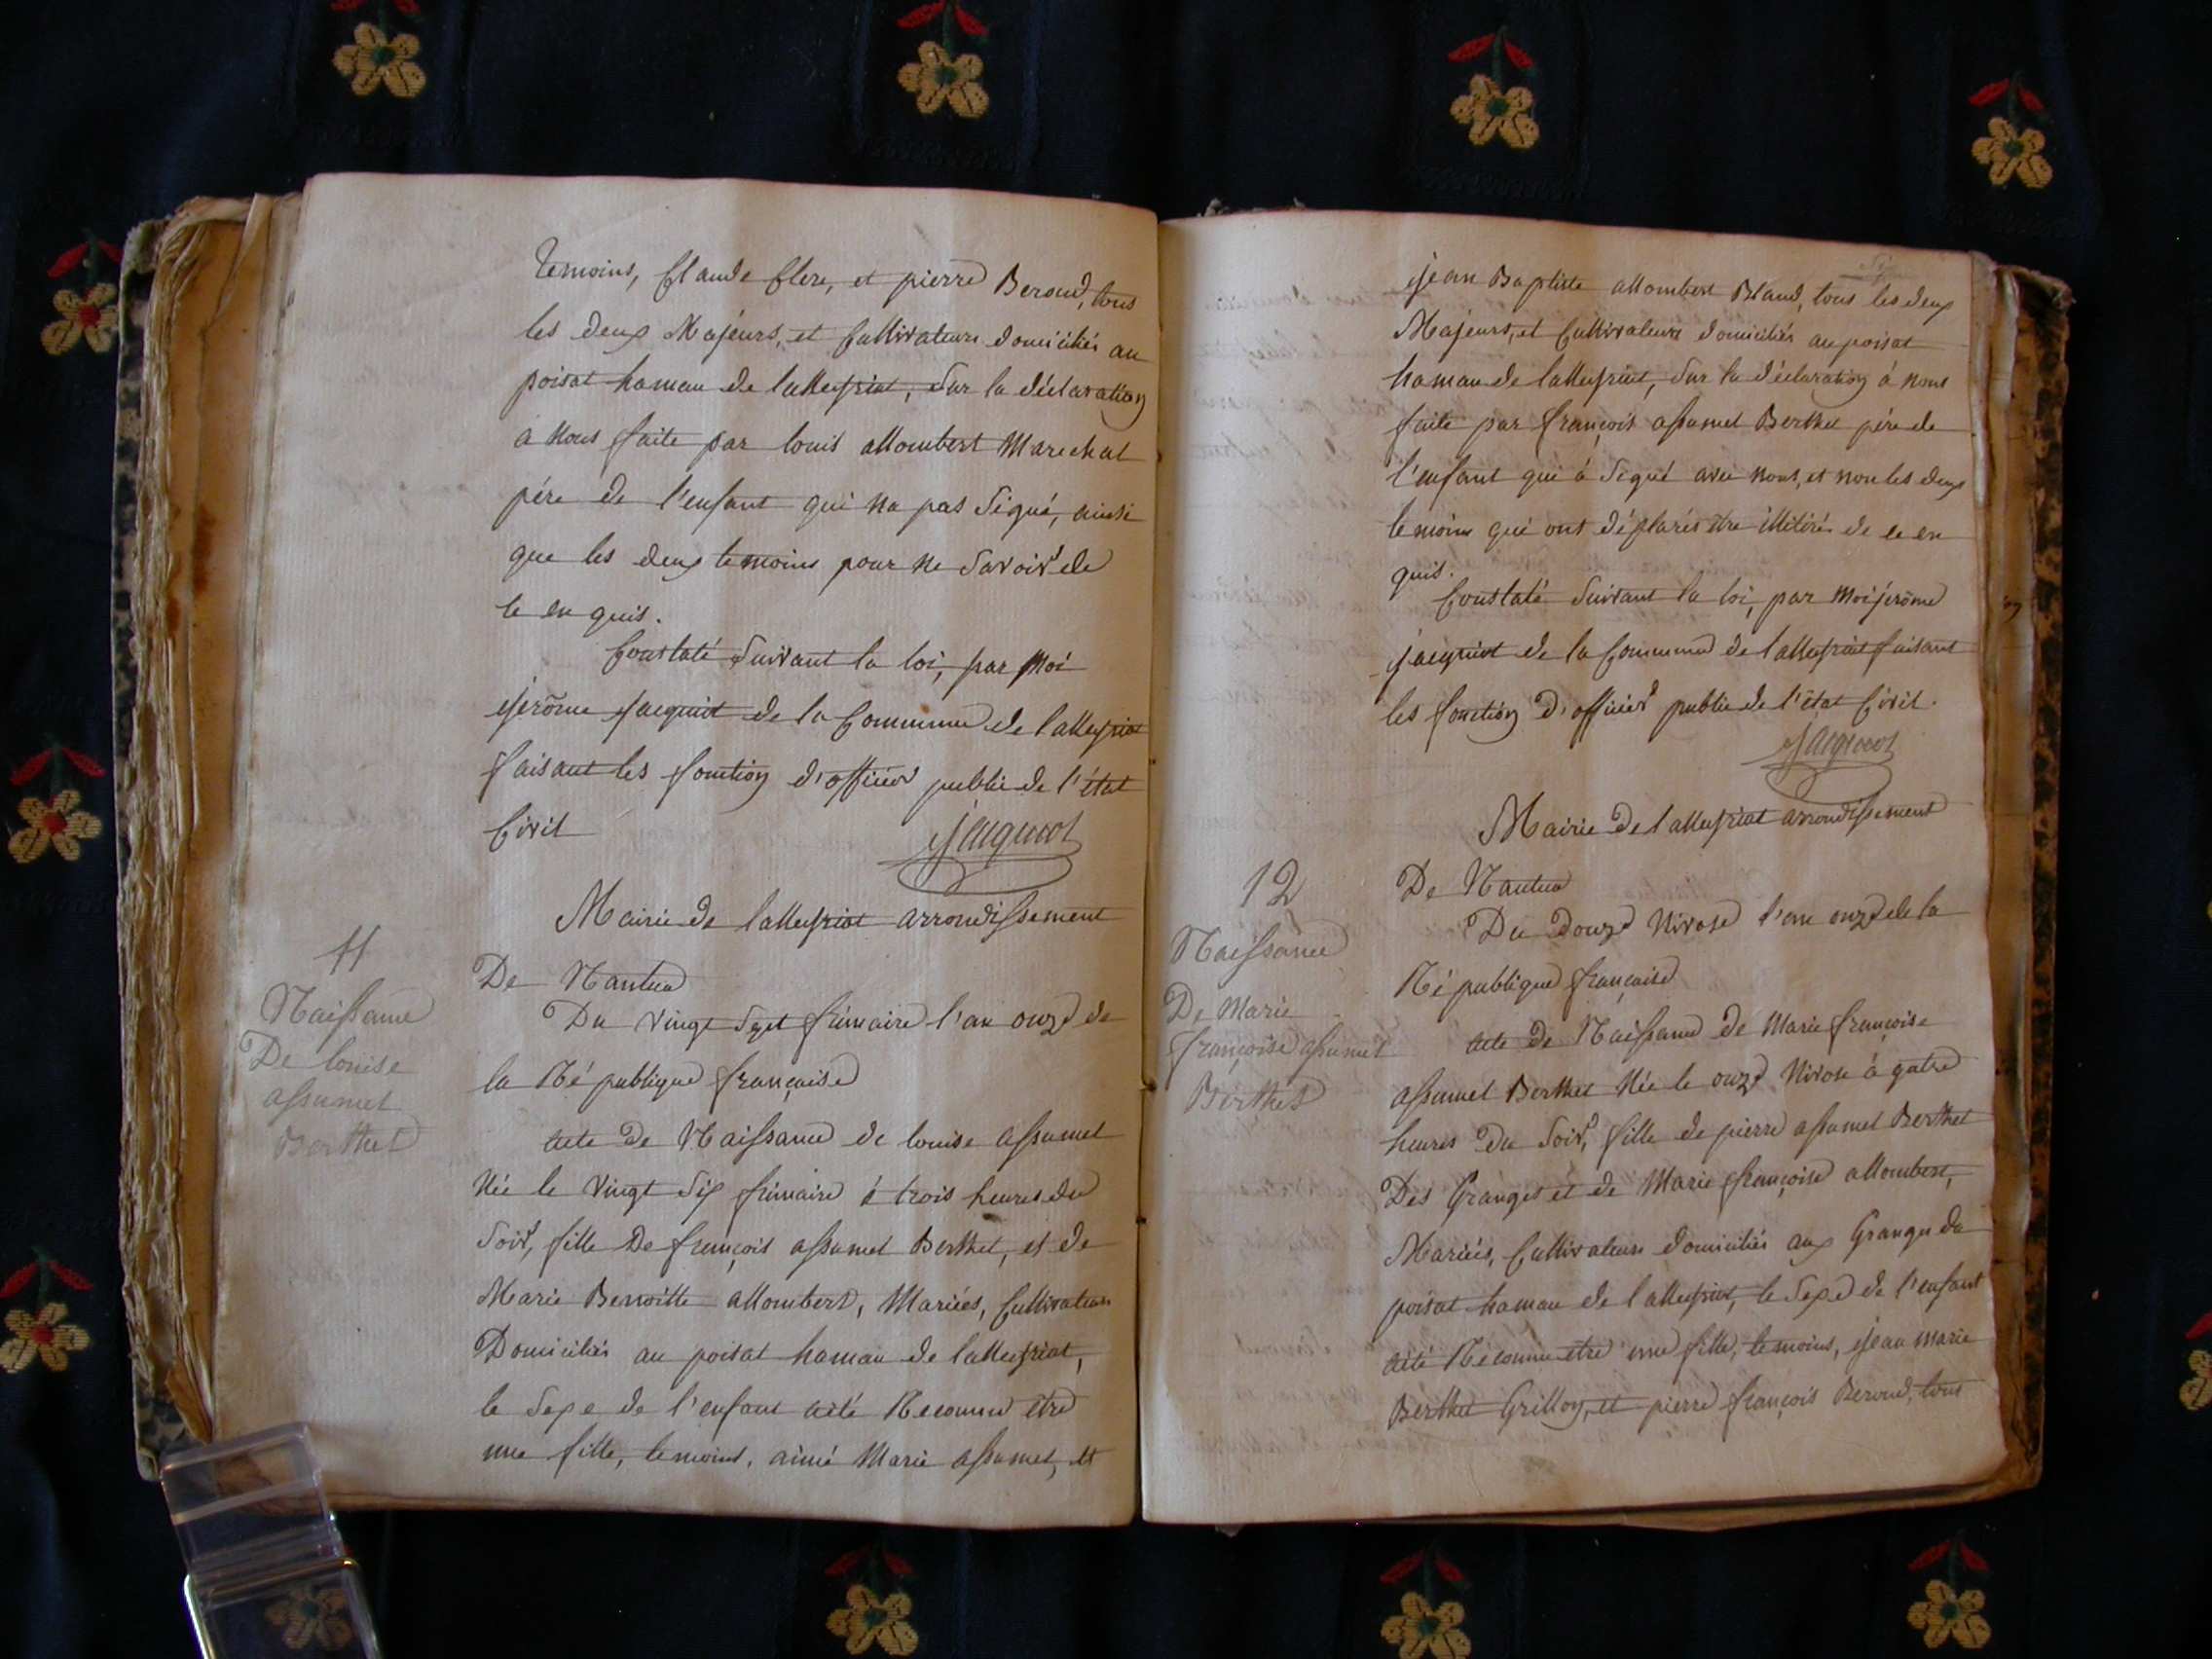 temoins, Claude Clere, et pierre Beroud, tous
les deux Majeurs, et Cultivateurs domiciliés au
poisat hamau de lalleyriat, Sur la déclaration
à Nous faite par louis allombert Marechal
pére de l'enfant qui na pas Signé, ainsi
que les deux temoins pour ne Savoir de
ce en quis.
Constaté Suivant la loi, par Moi
jerôme jacquiot de la Commune de lalleyriat
faisant les fonction d'officier public de l'état
Civil
jacquiot
Mairie de lalleyriat arrondissement
De Nantua
11
Naissance
De louise
assumel
Berthet
Du vingt Sept frimaire l'an onze de
la République française
acte de Naissance de louise assumel
Née le vingt Six frimaire à trois heures du
Soir, fille De françois assumel Berthet, et de
Marie Benoitte allombert, Mariées, Cultivateurs
Domiciliés au poisat hamau de lalleyriat,
le Sexe de l'enfant aété Reconnu être
une fille, temoins, aimé Marie assumel, et
Six
jean Baptiste allombert Bland, tous les deux
Majeurs, et Cultivateurs domiciliés au poisat
hamau de lalleyriat, Sur la déclaration à nous
faite par françois assumel Berthet pére de
l'enfant qui à Signé avec nous, et non les deux
temoins qui ont déplarés être illitérés de ce en
quis.
Constaté Suivant la loi, par Moi jerôme
jacquiot de la Commune de lalleyriat faisant
les fonction d'officier public de l'état Civil.
jacquiot
Mairie de lalleyriat arrondissement
De Nantua
12
Naissance
De Marie
françoise assumel
Berthet
Du Douze Nivose l'an onze de la
République française
acte de Naissance de Marie françoise
assumel Berthet Née le onze Nivose à quatre
heures du Soir, fille de pierre assumel Berthet
Des Granges et de Marie françoise allombert,
Mariées, Cultivateurs domiciliés aux Granges du
poisat hamau de lalleyriat, le Sexe de l'enfant
aété Réconnu être une fille, temoins, jean marie
Berthet Grillon, et pierre françois Beroud, tous